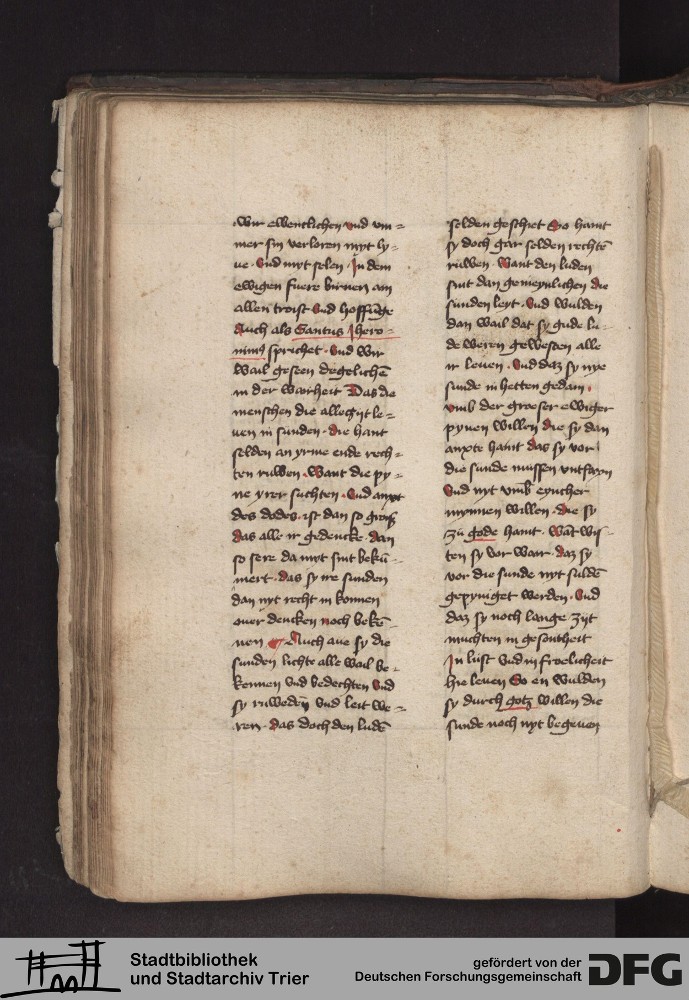 wir ewentlichen vnd vm=
mer sin verloren myt ly=
ue · Vnd myt selen · Jn dem
ewigen fuere birnen ain
allen troist Vnd hoffūge
Auch als Santus Jhero=
nimꝰ sprichet · Vnd wir
wail geseen degelichē
in der wairheit Das die
menschen die allezijt le=
uen in sunden · die hant
selden an yrme ende rech=
ten ruwen · Want die py=
ne yrer suchten · Vnd anxt
des dodes · ist dan so groiß
das alle ir gedencke · dan
so sere da myt sint bekū=
mert · das sy ire sunden
dan nyt recht in konnen
ouer dencken noch bekē=
nen Auch aue sy die
sunden lichte alle wail be=
kennen vnd bedechten Vnd
sy ruweden vnd leit we=
ren · das doch den ludē
selden geschiet So haint
sy doch gar selden rechtē
ruwen · Want den luden
sint dan gemeynlichen die
sunden leyt · Vnd wulden
dan wail dat sy gude lu=
de weren gewesten alle
ir leuen · Vnd daz sy nye
sunde in hetten gedain ·
vmb der groeser ewiger
pynen willen die sy dan
anxte haint das sy vor
die sunde mussen vntfayn
Vnd nyt vmb eyncher
mynnen willen · die sy
zu gode haint · Wāt wis=
ten sy vor wair · daz sy
vor die sunde nyt suldē
gepyniget werden · Vnd
daz sy noch lange zijt
muchten in gesontheit
Jn lust vnd in froelicheit
hie leuen So en wulden
sy durch gotz willen die
sunde noch nyt begeuen
Stadtbibliothek
und Stadtarchiv Trier
gefördert von der
Deutschen Forschungsgemeinschaft
DFG